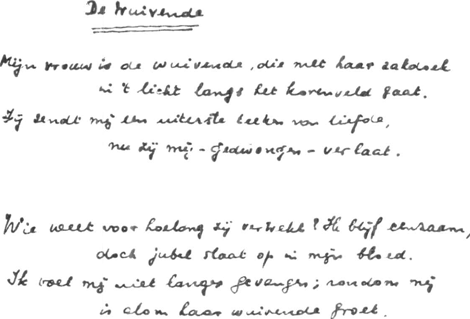 De Wuivende
Mijn vrouw is de wuivende, die met haar zakdoek
in 't licht langs het korenveld gaat.
Zij zendt mij een uiterste teeken van liefde,
nu zij mij - gedwongen - verlaat.
Wie weet voor hoelang zij vertrekt? Ik blijf eenzaam,
doch jubel slaat op in mijn bloed.
Ik voel mij niet langer gevangen; rondom mij
is alom haar wuivende groet.